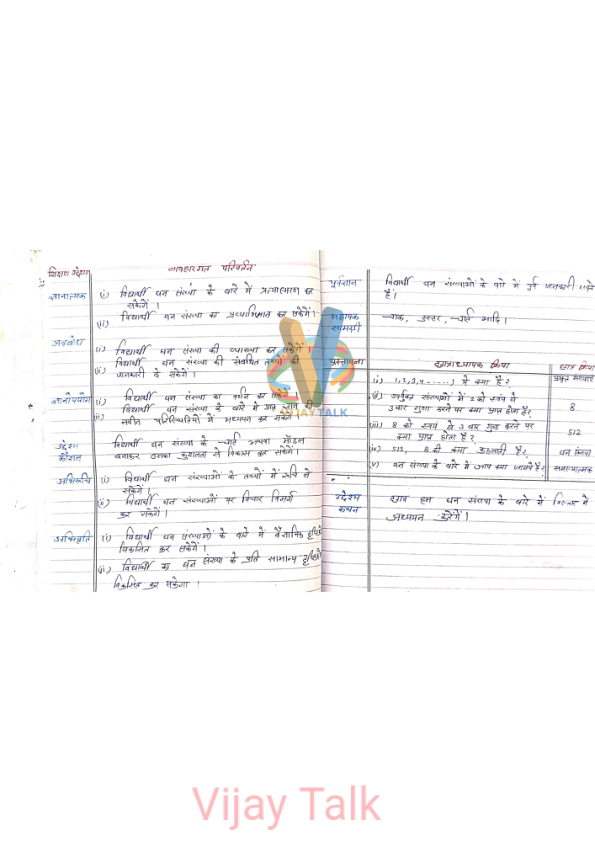 शिक्षण उद्देश्य
व्यवहारगत परिवर्तन
ज्ञानात्मक
(i) विद्यार्थी घन संख्या के बारे में प्रत्यास्मरण कर
सकेंगे।
(ii) विद्यार्थी घन संख्या का प्रत्याभिज्ञान कर सकेंगे।
अवबोध
(i) विद्यार्थी घन संख्या की व्याख्या कर सकेंगे।
(ii) विद्यार्थी घन संख्या की संबंधित तथ्यों की
जानकारी दे सकेंगे।
ज्ञानोपयोग
(i) विद्यार्थी घन संख्या का वर्णन कर सकेंगे।
(ii) विद्यार्थी घन संख्या के बारे में प्राप्त ज्ञान की
नवीन परिस्थितियों में अध्ययन कर सकेंगे।
उद्देश्य
कौशल
विद्यार्थी घन संख्या के चार्ट अथवा मॉडल
बनाकर उनका कुशलता से विकास कर सकेंगे।
अभिरूचि
(i) विद्यार्थी घन संख्याओं के तथ्यों में रूचि ले
सकेंगे।
(ii) विद्यार्थी घन संख्याओं पर विचार विमर्श
कर सकेंगे।
अभिवृति
(i) विद्यार्थी घन संख्याओं के बारे में वैज्ञानिक
विकसित कर सकेंगे।
(ii) विद्यार्थी घन संख्या के प्रति सामान्य
विकसित कर सकेगा।
पूर्वज्ञान
विद्यार्थी घन संख्याओं के बारे में पूर्व जानकारी रखते
हैं।
सहायक
सामग्री
चाक, डस्टर, चार्ट आदि।
प्रस्तावना
छात्राध्यापक क्रिया
छात्र क्रिया
(i) 1,2,3,4.....) में क्या है?
प्राकृत संख्याएं
(ii) उपर्युक्त संख्याओं में 2 को स्वयं से
3 बार गुणा करने पर क्या प्राप्त होता है?
8
(iii) 8 को स्वयं से 3 बार गुणा करने पर
क्या प्राप्त होता है?
512
(iv) 512, 8 की क्या कहलाती है?
घन संख्या
(v) घन संख्या के बारे में आप क्या जानते हैं?
समस्यात्मक
उद्देश्य
कथन
छात्र हम घन संख्या के बारे में विस्तार से
अध्ययन करेंगे।
VIJAY TALK
Vijay Talk